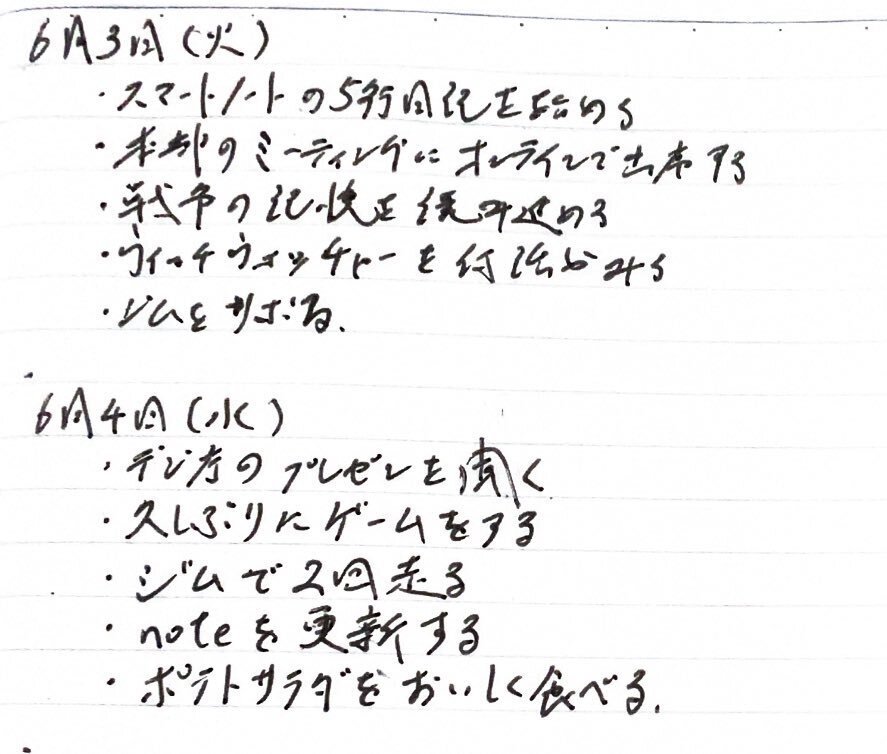 6月3日(火)
・スマートノートの5行日記を始める
・本部のミーティングにオンラインで出席する
・戦争の記憶を読み進める
・ウィッチウォッチャーを
・ジムをサボる.
6月4日(水)
・デジ庁のプレゼンを聞く
・久しぶりにゲームをする
・ジムで2回走る
・noteを更新する
・ポテトサラダをおいしく食べる.